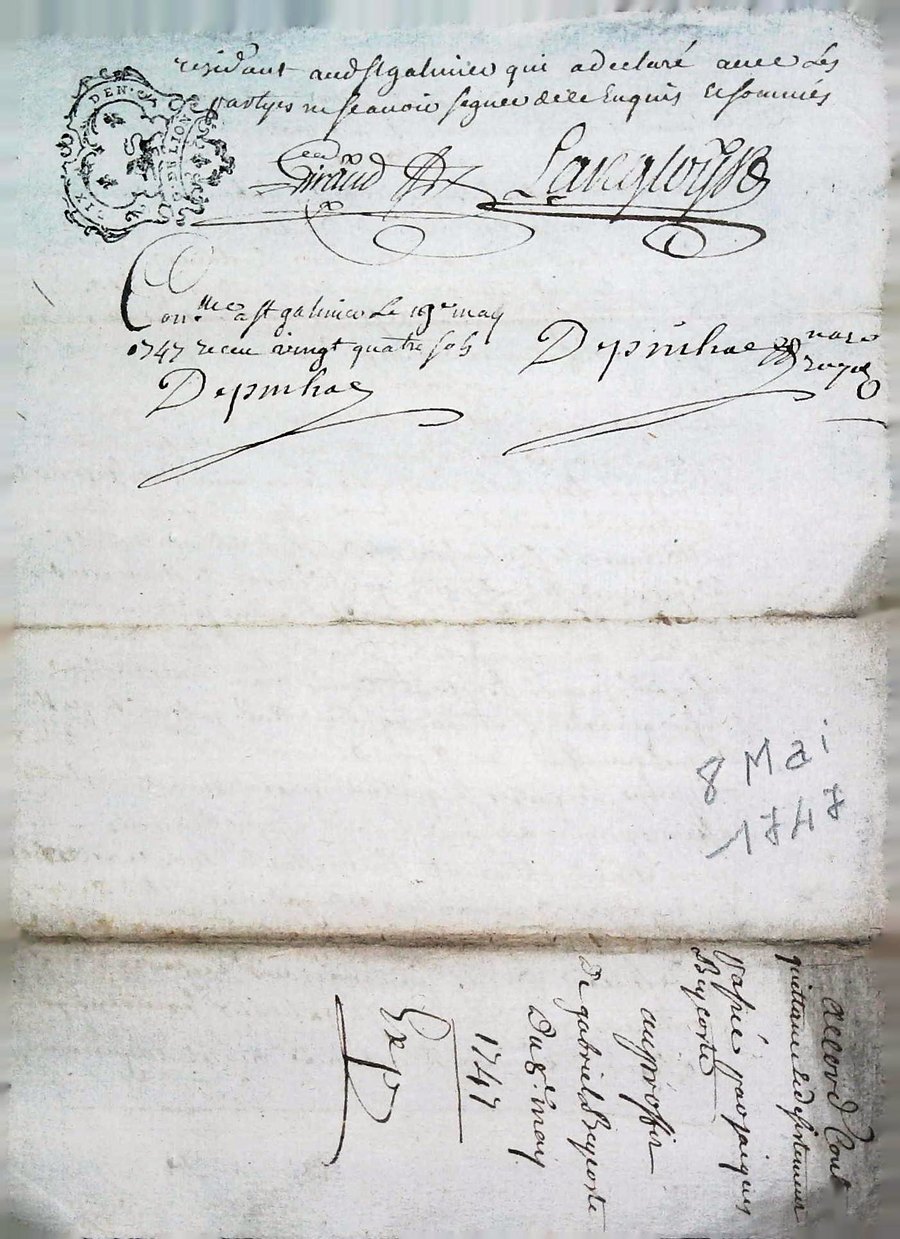 residant aud st galmier qui a declaré avec les
partyes ne scavoir signer de ce Enquis et sommés
SIX DEN.
G. DE LION
Giraud Langloys
Con.lle a st galmier Le 19e may
1747 receu vingt quatre sols
Depinhac
Depinhac
8 Mai
1747
accord Cont
quittance et desistement
passé par jaques
Beycoste
au proffit
De gabriel Beycoste
Du 8e may
1747
Exp